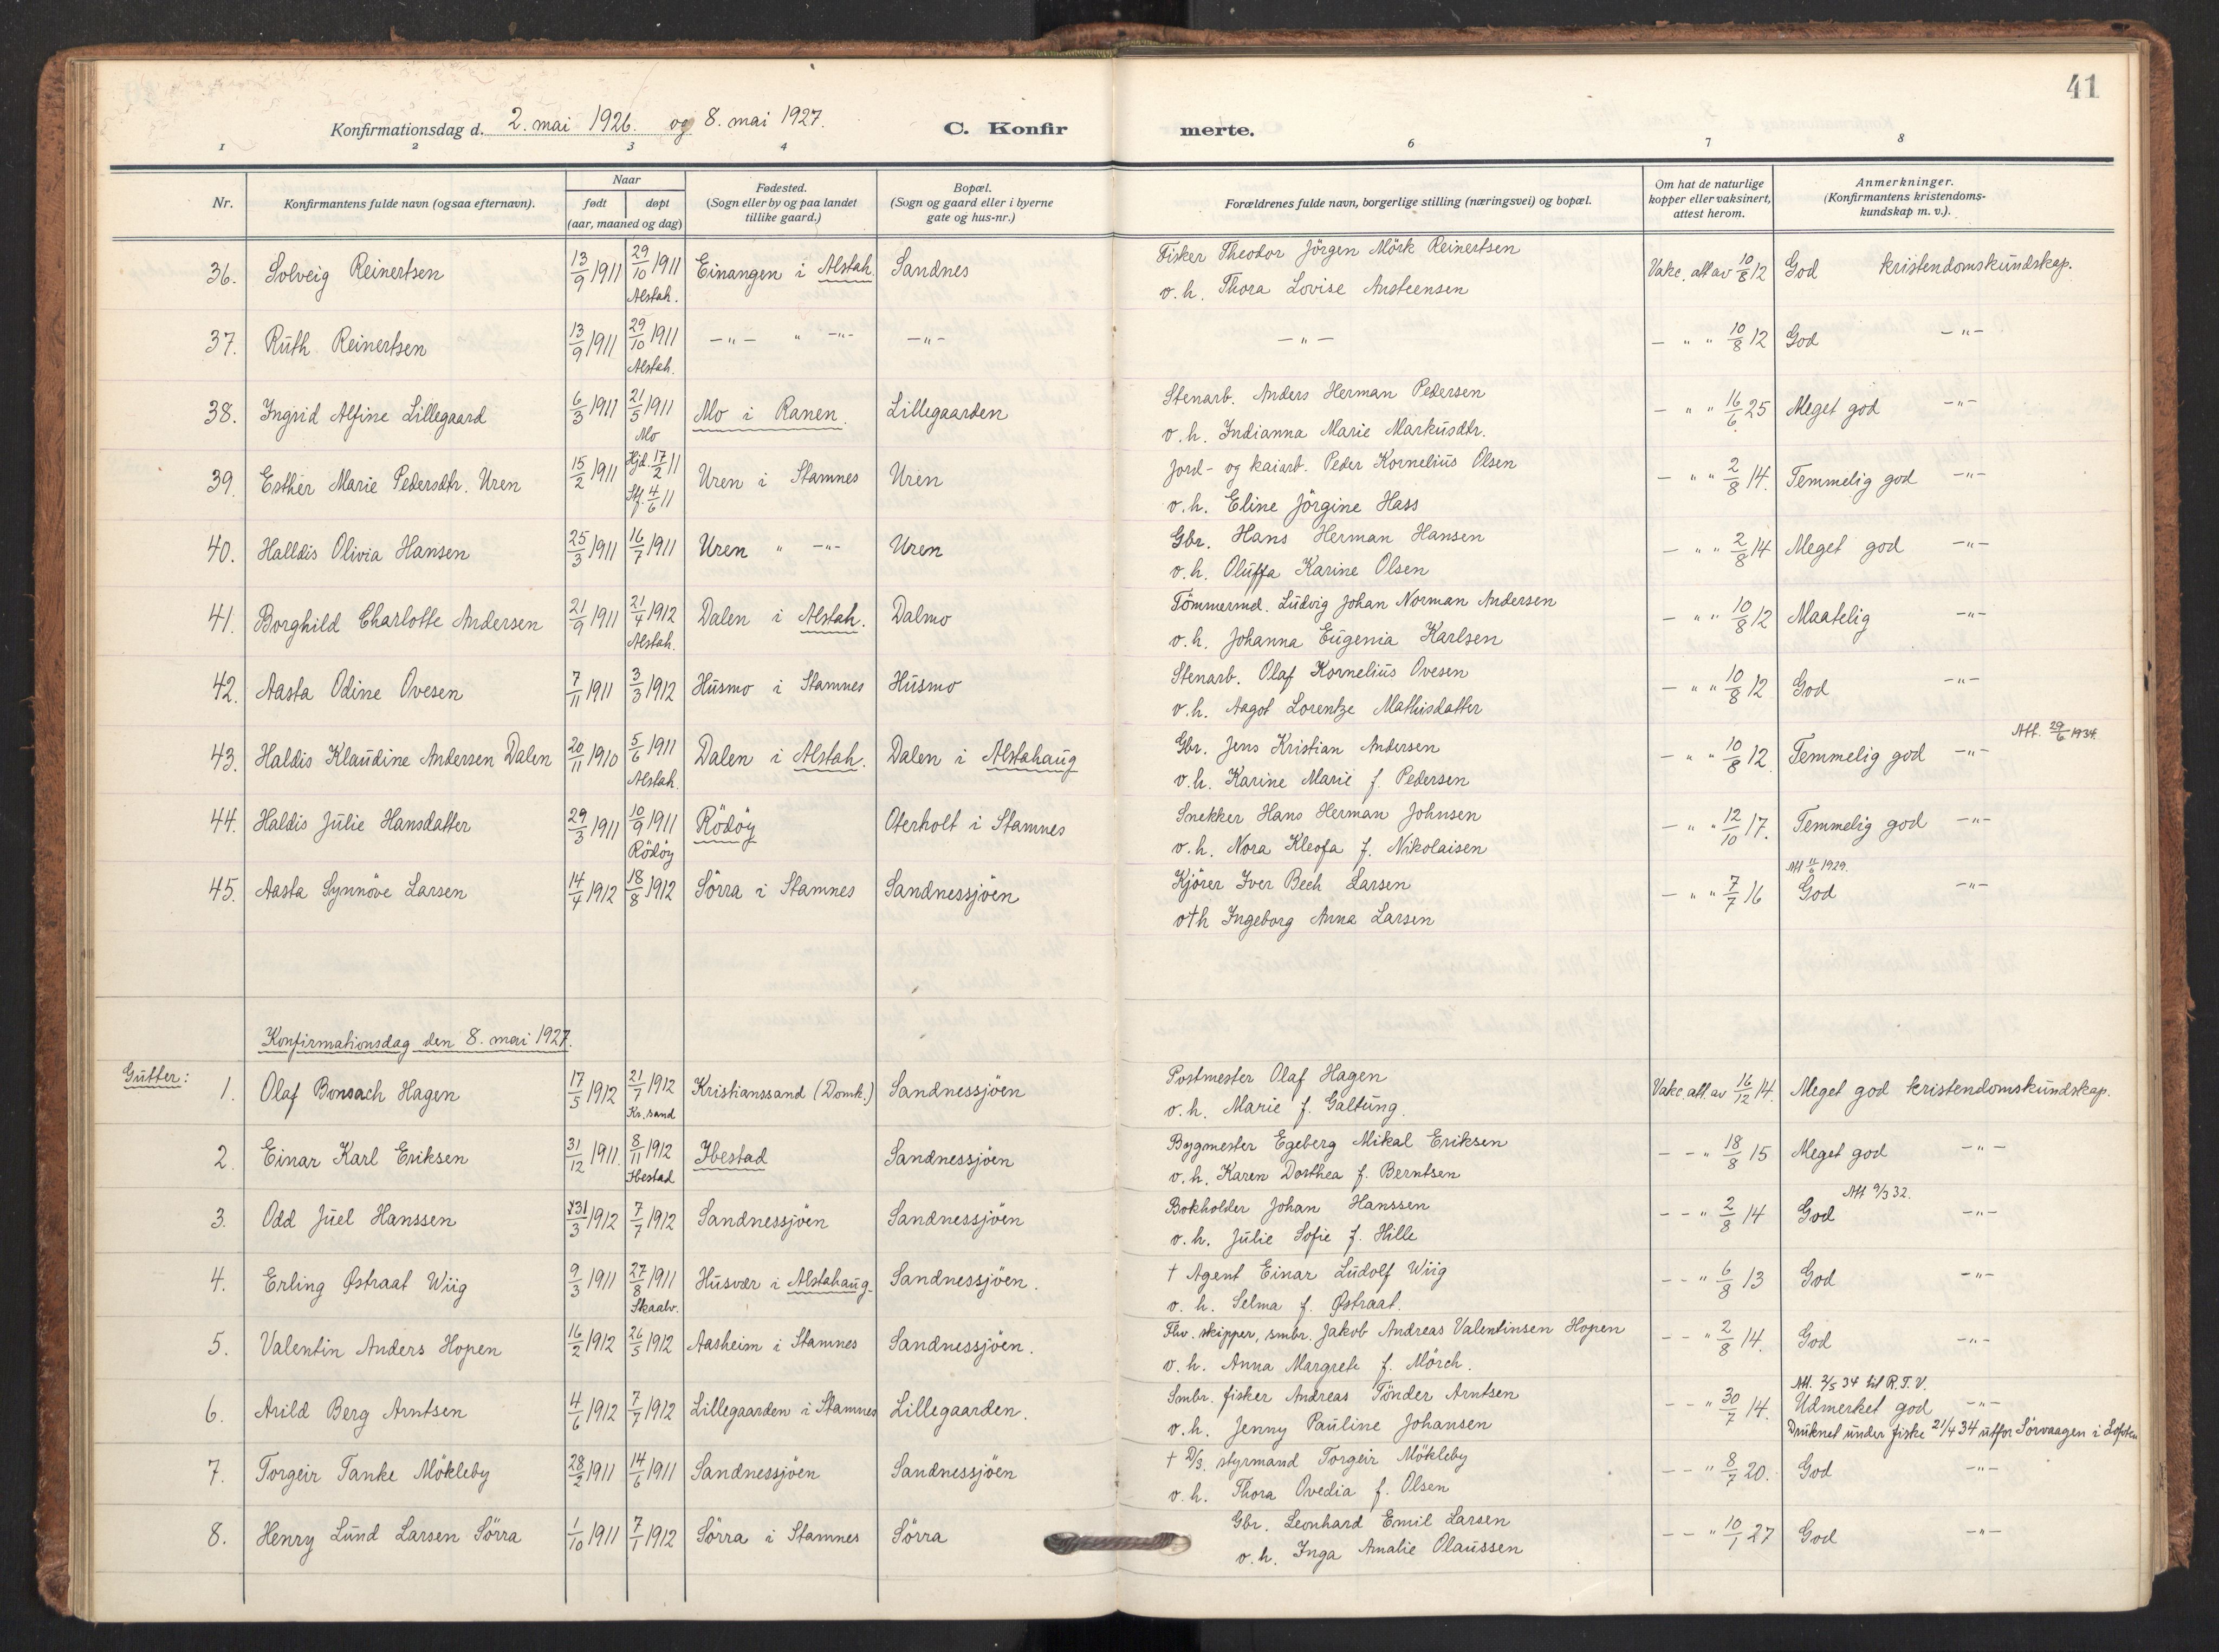 41
Konfirmationsdag d. 2. mai 1926. og 8. mai 1927. C. Konfirmerte.
1 2 3 4 6 7 8
Nr.
Konfirmantens fulde navn (ogsaa efternavn).
Naar
født døpt
(aar, maaned og dag)
Fødested.
(Sogn eller by og paa landet
tillike gaard.)
Bopæl.
(Sogn og gaard eller i byerne
gate og hus-nr.)
Forældrenes fulde navn, borgerlige stilling (næringsvei) og bopæl.
Om hat de naturlige
kopper eller vaksinert,
attest herom.
Anmerkninger.
(Konfirmantens kristendoms-
kundskap m. v.).
36. Solveig Reinertsen 13/9 1911 29/10 1911 Alstah. Einangen i Alstah. Sandnes
Fisker Theodor Jörgen Mörk Reinertsen
o. h. Thora Lovise Austeensen
Vakc. att av 10/8 12 God kristendomskundskap.
37. Ruth Reinertsen 13/9 1911 29/10 1911 Alstah. -"- " -"- -"-
-"-
- " " 10/8 12 God -"-
38. Ingrid Alfine Lillegaard 6/3 1911 21/5 1911 Mo Mo i Ranen. Lillegaarden
Stenarb. Anders Herman Pedersen
o. h. Indianna Marie Markusdtr.
- " " 16/6 25 Meget god -"-
39. Esther Marie Pedersdtr. Uren 15/2 1911 Hjd. 17/2 11 Stf. 4/6 11 Uren i Stamnes Uren
Jord- og kaiarb. Peder Kornelius Olsen
o. h. Eline Jörgine Hass
- " " 2/8 14. Temmelig god -"-
40. Halldis Olivia Hansen 25/3 1911 16/7 1911 Uren " -"- Uren
Gbr. Hans Herman Hansen
o. h. Oluffa Karine Olsen
- " " 2/8 14 Meget god -"-
41. Borghild Charlotte Andersen 21/9 1911 21/4 1912 Alstah. Dalen i Alstah. Dalmo
Tömmermd. Ludvig Johan Norman Andersen
o. h. Johanna Eugenia Karlsen
- " " 10/8 12 Maatelig -"-
42. Aasta Odine Ovesen 7/11 1911 3/3 1912 Husmo i Stamnes Husmo
Stenarb. Olaf Kornelius Ovesen
o. h. Aagot Lorentze Mathisdatter
- " " 10/8 12 God -"-
43. Haldis Klaudine Andersen Dalen 20/11 1910 5/6 1911 Alstah. Dalen i Alstah. Dalen i Alstahaug
Gbr. Jens Kristian Andersen
o. h. Karine Marie f. Pedersen
- " " 10/8 12. Temmelig god -"- Att. 29/6 1934.
44. Haldis Julie Hansdatter 29/3 1911 10/9 1911 Rödöy Rödöy Oterholt i Stamnes
Snekker Hans Herman Johnsen
o. h. Nora Kleofa f. Nikolaisen
- " " 12/10 17. Temmelig god -"-
45. Aasta Synnöve Larsen 14/4 1912 18/8 1912 Sörra i Stamnes Sandnessjöen
Kjörer Iver Bech Larsen
o † h Ingeborg Anna Larsen
- " " 7/7 16 God -"- Att 11/6 1929.
Konfirmationsdag den 8. mai 1927.
Gutter:
1. Olaf Bonsach Hagen 17/5 1912 21/7 1912 Kr.sand Kristianssand (Domk.) Sandnessjöen
Postmester Olaf Hagen
o. h. Marie f. Galtung.
Vakc. att. av 16/12 14. Meget god kristendomskundskap.
2. Einar Karl Eriksen 31/12 1911. 8/11 1912 Ibestad Ibestad Sandnessjöen
Bygmester Egeberg Mikal Eriksen
o. h. Karen Dorthea f. Berntsen
- - " 18/8 15 Meget god -"-
3. Odd Juel Hanssen 31/3 1912 7/7 1912 Sandnessjöen Sandnessjöen
Bokholder Johan Hanssen
o. h. Julie Sofie f. Hille
- - " 2/8 14 God -"- Att 9/3 32.
4. Erling Østraat Wiig 9/3 1911 27/8 1911 Skaalv. Husvær i Alstahaug. Sandnessjöen.
† Agent Einar Ludolf Wiig
o. h. Selma f. Østraat.
- - " 6/8 13 God -"-
5. Valentin Anders Hopen 16/2 1912 26/5 1912 Aasheim i Stamnes Sandnessjöen.
Fhv. skipper, smbr. Jakob Andreas Valentinsen Hopen
o. h. Anna Margrete f. Mörch.
- - " 2/8 14. God -"-
6. Arild Berg Arntsen 4/6 1912 7/7 1912 Lillegaarden i Stamnes Lillegaarden.
Smbr. fisker Andreas Tönder Arntsen
o. h. Jenny Pauline Johansen
- - " 30/7 14. Att. 2/5 34 til R.T.V.
Udmerket god -"-
Druknet under fiske 21/4 34 utfor Sörvaagen i Lofoten
7. Torgeir Tanke Mökleby 28/2 1911 14/6 1911 Sandnessjöen Sandnessjöen
† D/S. styrmand Torgeir Mökleby
o. h. Thora Ovedia f. Olsen
- - " 8/7 20. God -"-
8. Henry Lund Larsen Sörra 1/10 1911 7/1 1912 Sörra i Stamnes Sörra
Gbr. Leonhard Emil Larsen
o. h. Inga Amalie Olaussen
- - " 10/1 27 God -"-